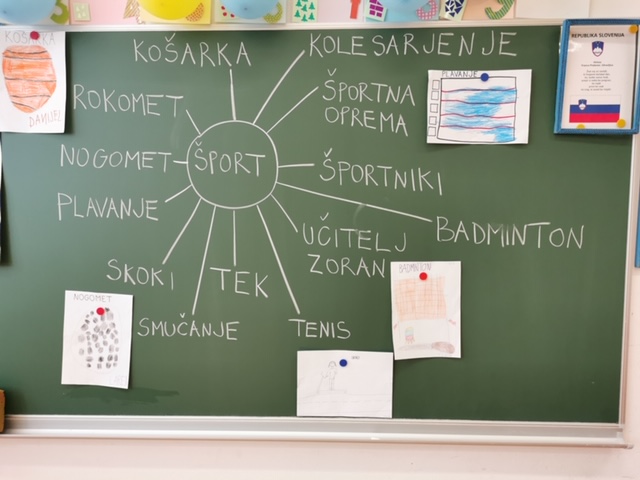 KOŠARKA
KOLESARJENJE
ROKOMET
ŠPORTNA
OPREMA
NOGOMET
ŠPORT
ŠPORTNIKI
PLAVANJE
UČITELJ
ZORAN
BADMINTON
SKOKI
TEK
SMUČANJE
TENIS
KOŠARKA
DANIJEL
PLAVANJE
REPUBLIKA SLOVENIJA
NOGOMET
BADMINTON